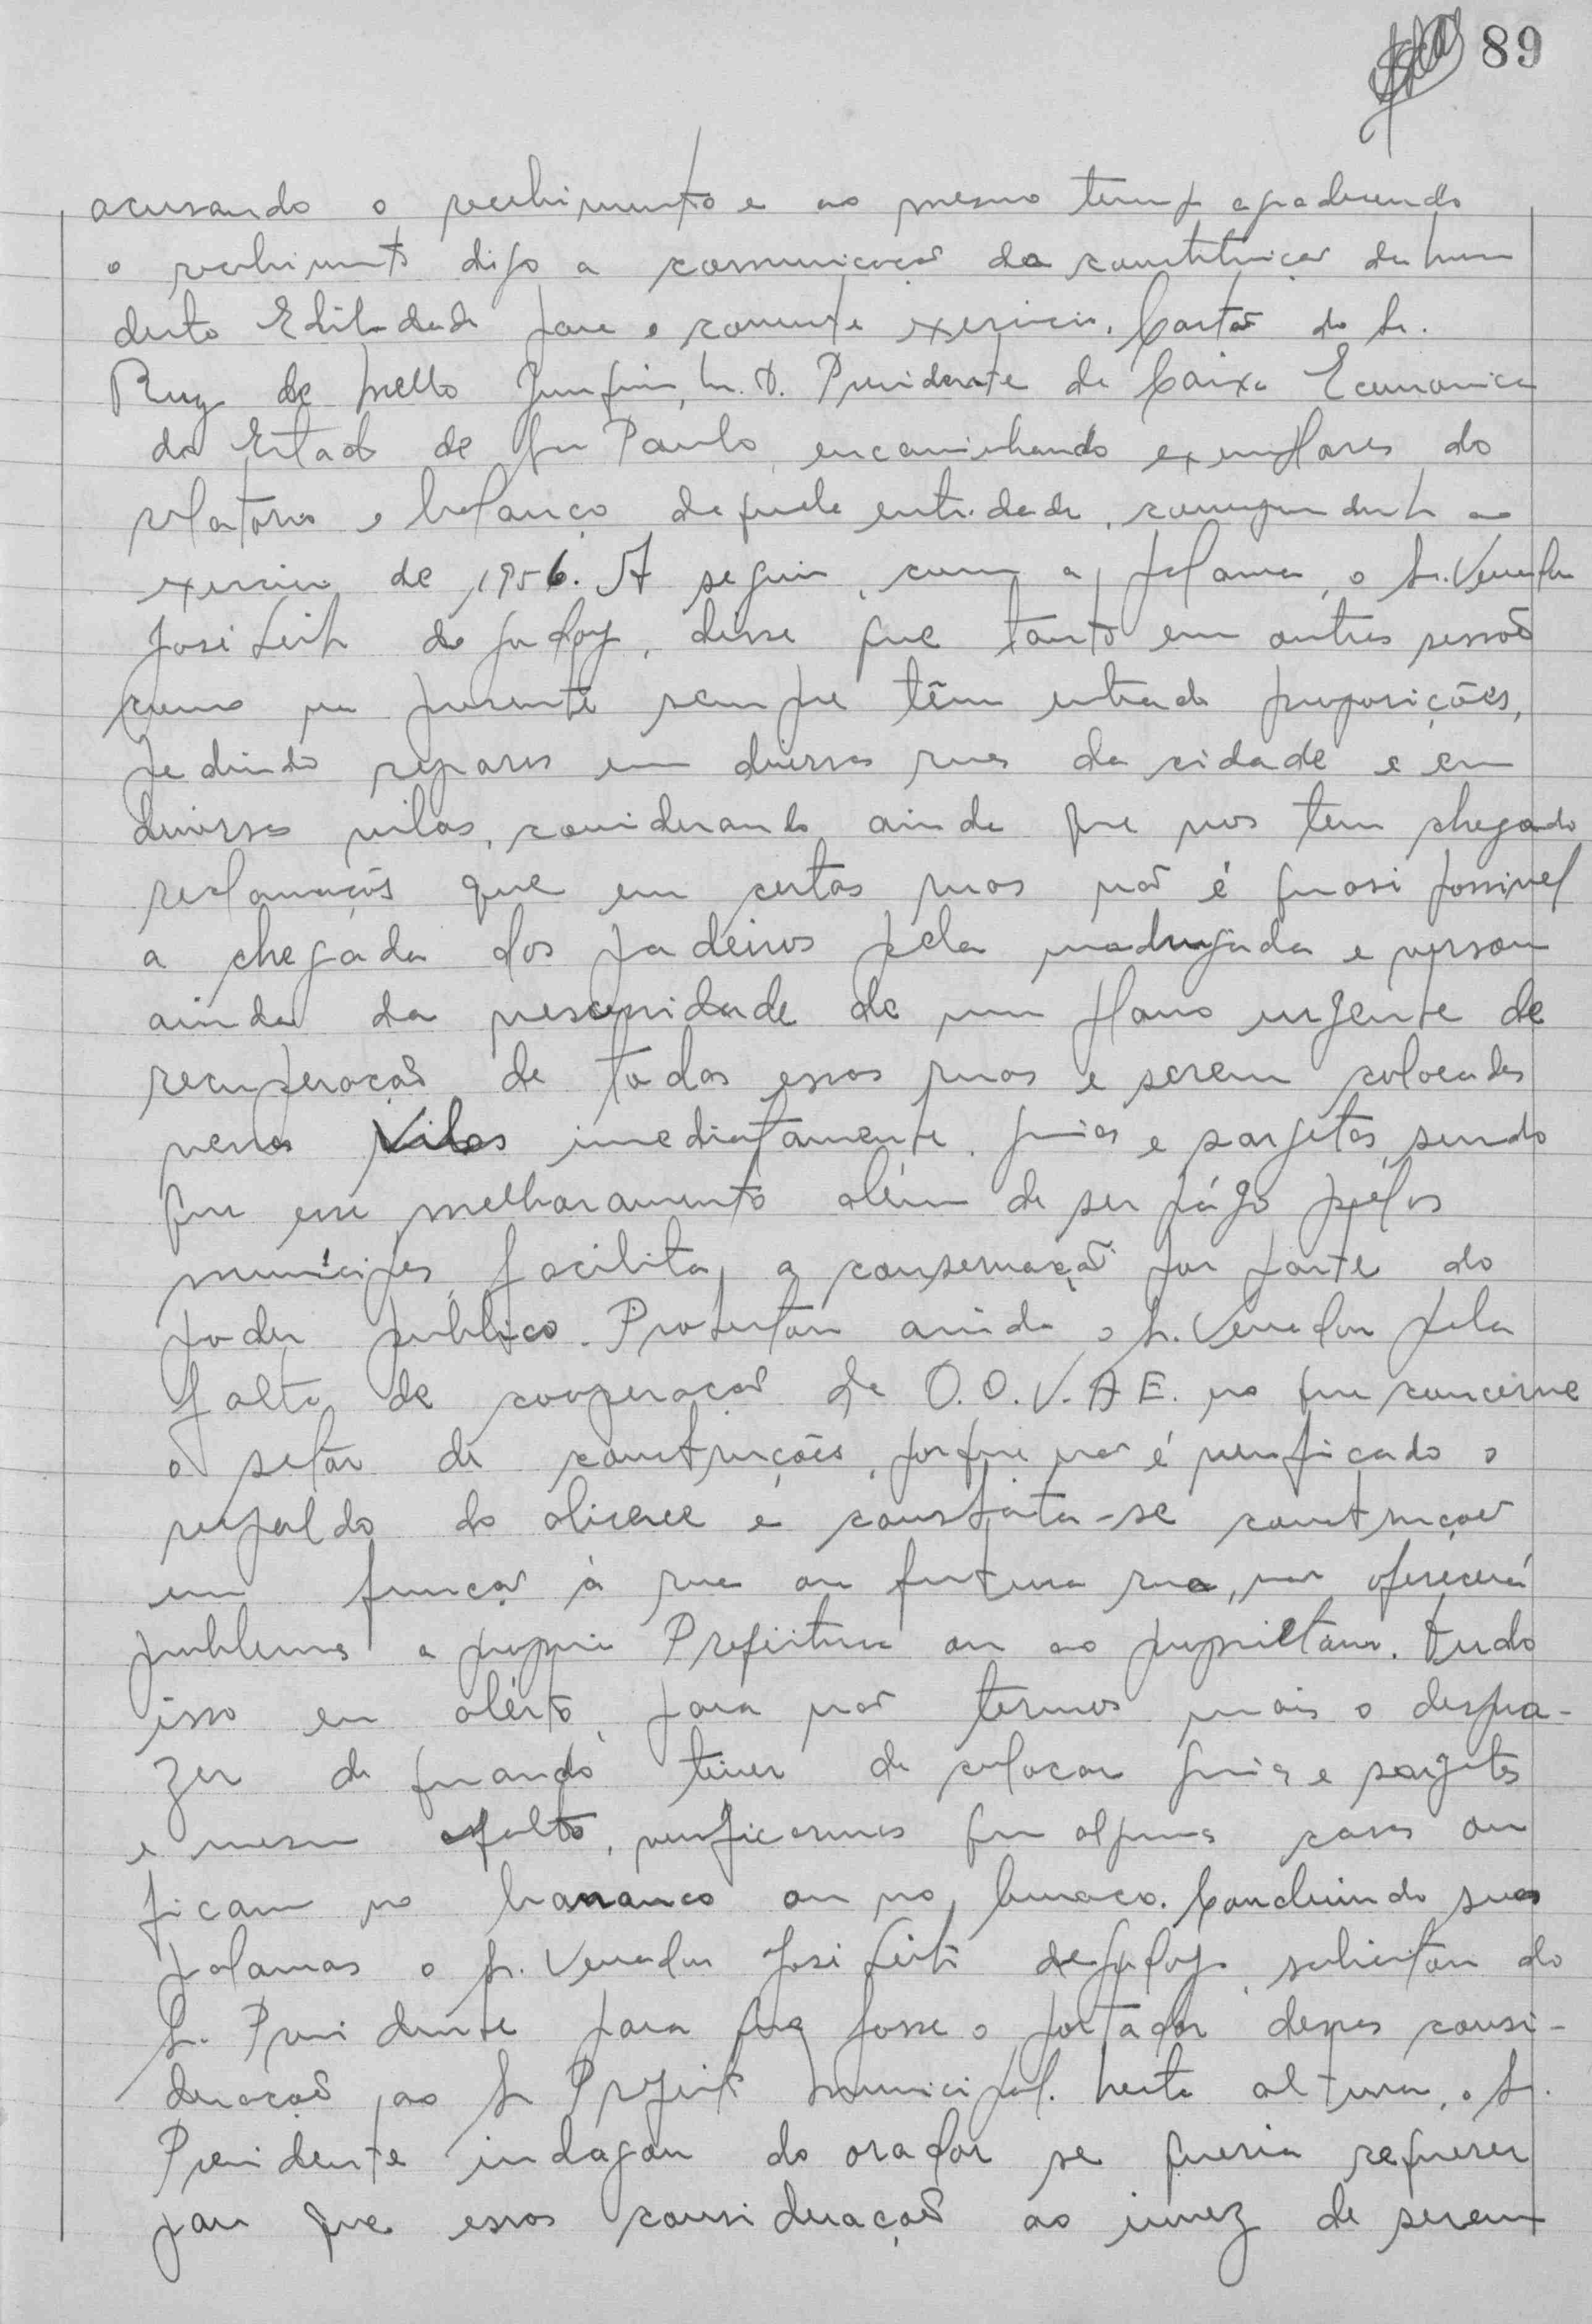 89
acusando o recebimento e ao mesmo tempo agradecendo
o recebimento digo a comunicação da constituição da mesa
desta Edilidade para o corrente exercicio. Cartão do Sr.
Ruy de Mello Junqueira, M. D. Presidente da Caixa Economica
do Estado de São Paulo, encaminhando exemplares do
relatorio e balanço daquela entidade, correspondente ao
exercicio de 1956. A seguir, com a palavra, o Sr. Vereador
José Leite de Godoy, disse que tanto em outras sessões
como na presente sempre têm entrado proposições,
pedindo reparos em diversas ruas da cidade e em
diversas vilas, considerando ainda que nos tem chegado
reclamações que em certas ruas não é quasi possivel
a chegada dos padeiros pela madrugada e versou
ainda da nescessidade de um plano urgente de
recuperação de todas essas ruas e serem colocadas
nessas Vilas imediatamente, guias e sargetas, sendo
que esse melhoramento além de ser págo pelos
munícipes, facilita a conservação por parte do
poder publico. Protestou ainda o Sr. Vereador pela
falta de cooperação da O.O.V.A E. no que concerne
o setôr de construções, porque não é verificado o
respaldo do alicerce e constata-se construções
em função à rua ou futura rua, não oferecerá
problemas a propria Prefeitura ou ao proprietario. tudo
isso em alérta, para não termos mais o despra-
zer de quando tiver de colocar guias e sargetas
e mesmo asfalto, verificarmos que algumas casas ou
ficam no barranco ou no buraco. Concluindo suas
palavras o Sr. Vereador José Leite de Godoy, solicitou do
Sr. Presidente para que fosse o portador dessas consi-
derações ao Sr Prefeito Municipal. Nesta altura, o Sr.
Presidente indagou do orador se queria requerer
para que essas considerações ao invez de serem